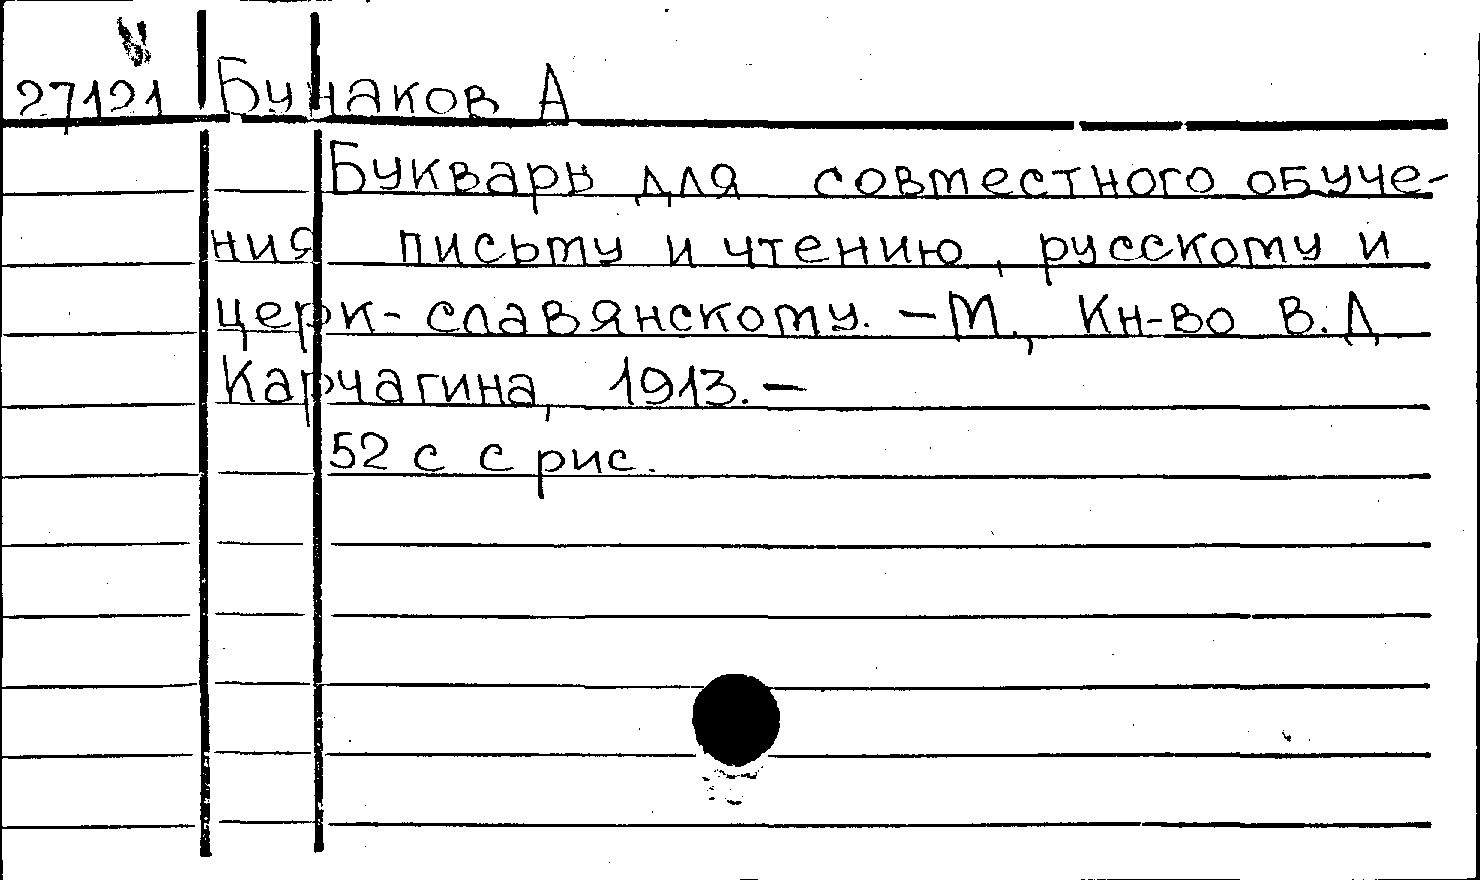 27121 Бунаков А
Букварь для совместного обуче-
ния письму и чтению, русскому и
церк-славянскому. - М., Кн-во В.Д
Карчагина, 1913. -
52 с с рис.